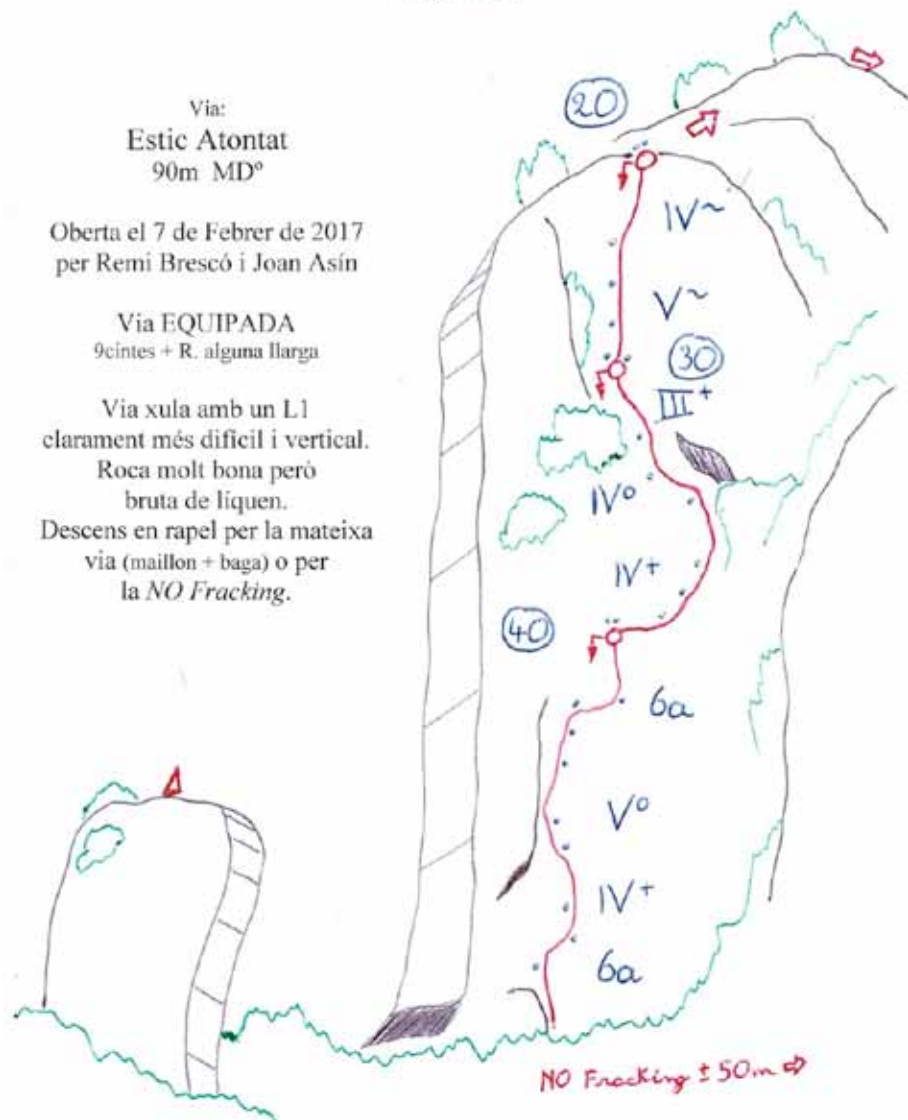 Via:
Estic Atontat
90m MDº
Oberta el 7 de Febrer de 2017
per Remi Brescó i Joan Asín
Via EQUIPADA
9cintes + R. alguna llarga
Via xula amb un L1
clarament més difícil i vertical.
Roca molt bona però
bruta de líquen.
Descens en rapel per la mateixa
via (maillon + baga) o per
la NO Fracking.
20
IV~
V~
30
III+
IVº
IV+
40
6a
Vº
IV+
6a
NO Fracking ± 50m ⇨